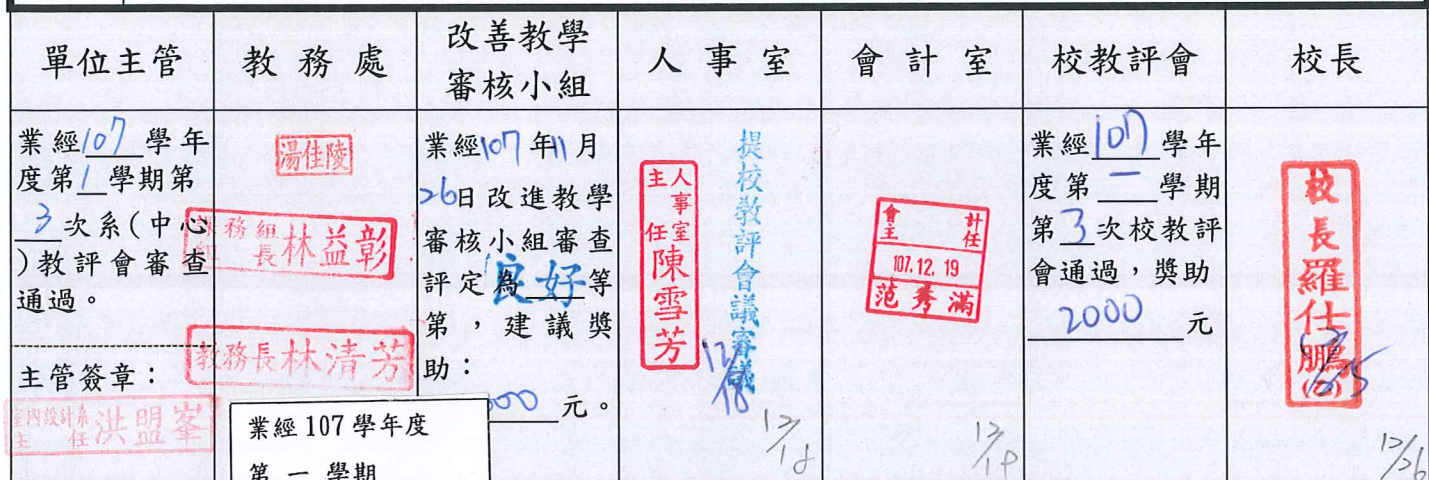 單位主管
教務處
改善教學
審核小組
人事室
會計室
校教評會
校長
業經107學年
度第1學期第
3次系(中心
)教評會審查
通過。
主管簽章：
室內設計系
主任
洪明峯
湯佳陵
課務組
組長
林益彰
教務長林清芳
業經107年11月
26日改進教學
審核小組審查
評定為良好等
第，建議獎
助：
元。
業經107學年度
第一學期
人事室
主任
陳雪芳
提校教評會議審議
12/18
12/18
會計
主任
107.12.19
范秀滿
12/19
業經107學年
度第一學期
第3次校教評
會通過，獎助
2000元
校長羅仕鵬
12/26